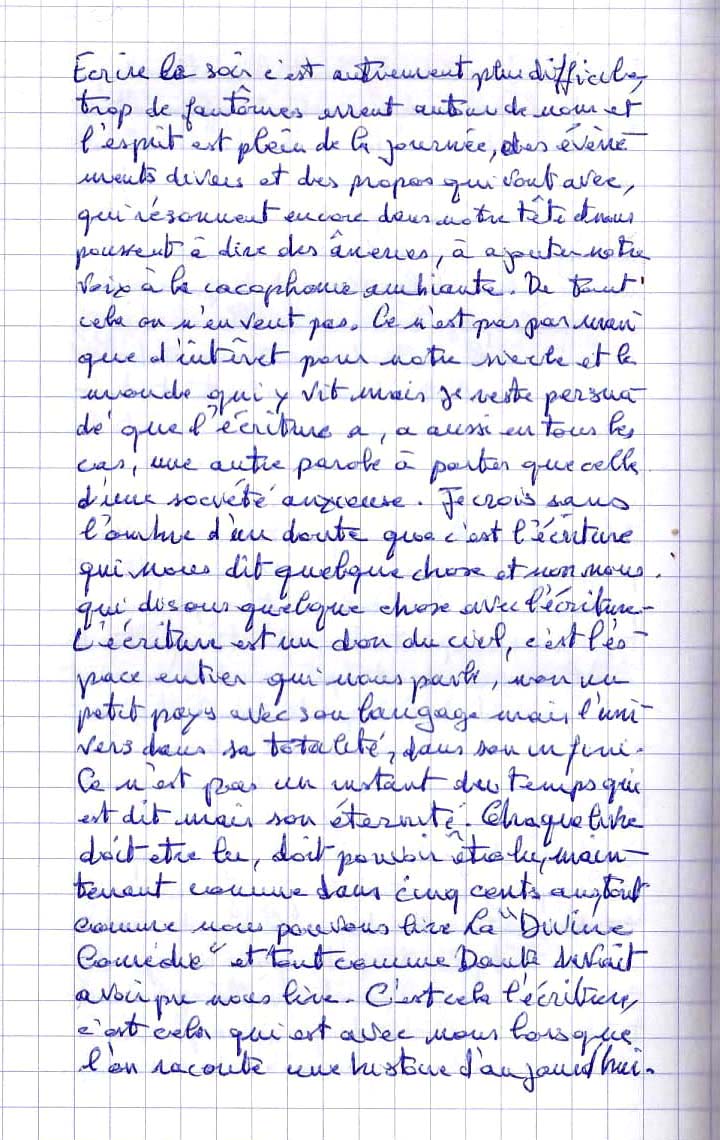 Ecrire le soir c'est autrement plus difficile,
trop de fantômes errent autour de nous et
l'esprit est plein de la journée, des événe-
ments divers et des propos qui vont avec,
qui résonnent encore dans notre tête et nous
poussent à dire des âneries, à ajouter notre
voix à la cacophonie ambiante. De tout
cela on n'en veut pas. Ce n'est pas par man-
que d'intérêt pour notre siècle et le
monde qui y vit mais je reste persua-
dé que l'écriture a, a aussi en tous les
cas, une autre parole à porter que celle
d'une société anxieuse. Je crois sans
l'ombre d'un doute que c'est l'écriture
qui nous dit quelque chose et non nous
qui disons quelque chose avec l'écriture.
L'écriture est un don du ciel, c'est l'es-
pace entier qui nous parle, non un
petit pays avec son langage mais l'uni-
vers dans sa totalité, dans son infini.
Ce n'est pas un instant du temps qui
est dit mais son éternité. Chaque livre
doit etre lu, doit pouvoir être lu, main-
tenant comme dans cinq cents ans, tout
comme nous pouvons lire La "Divine
Comédie" et tout comme Dante devrait
avoir pu nous lire. C'est cela l'écriture,
c'est cela qui est avec nous lorsque
l'on raconte une histoire d'aujourd'hui.